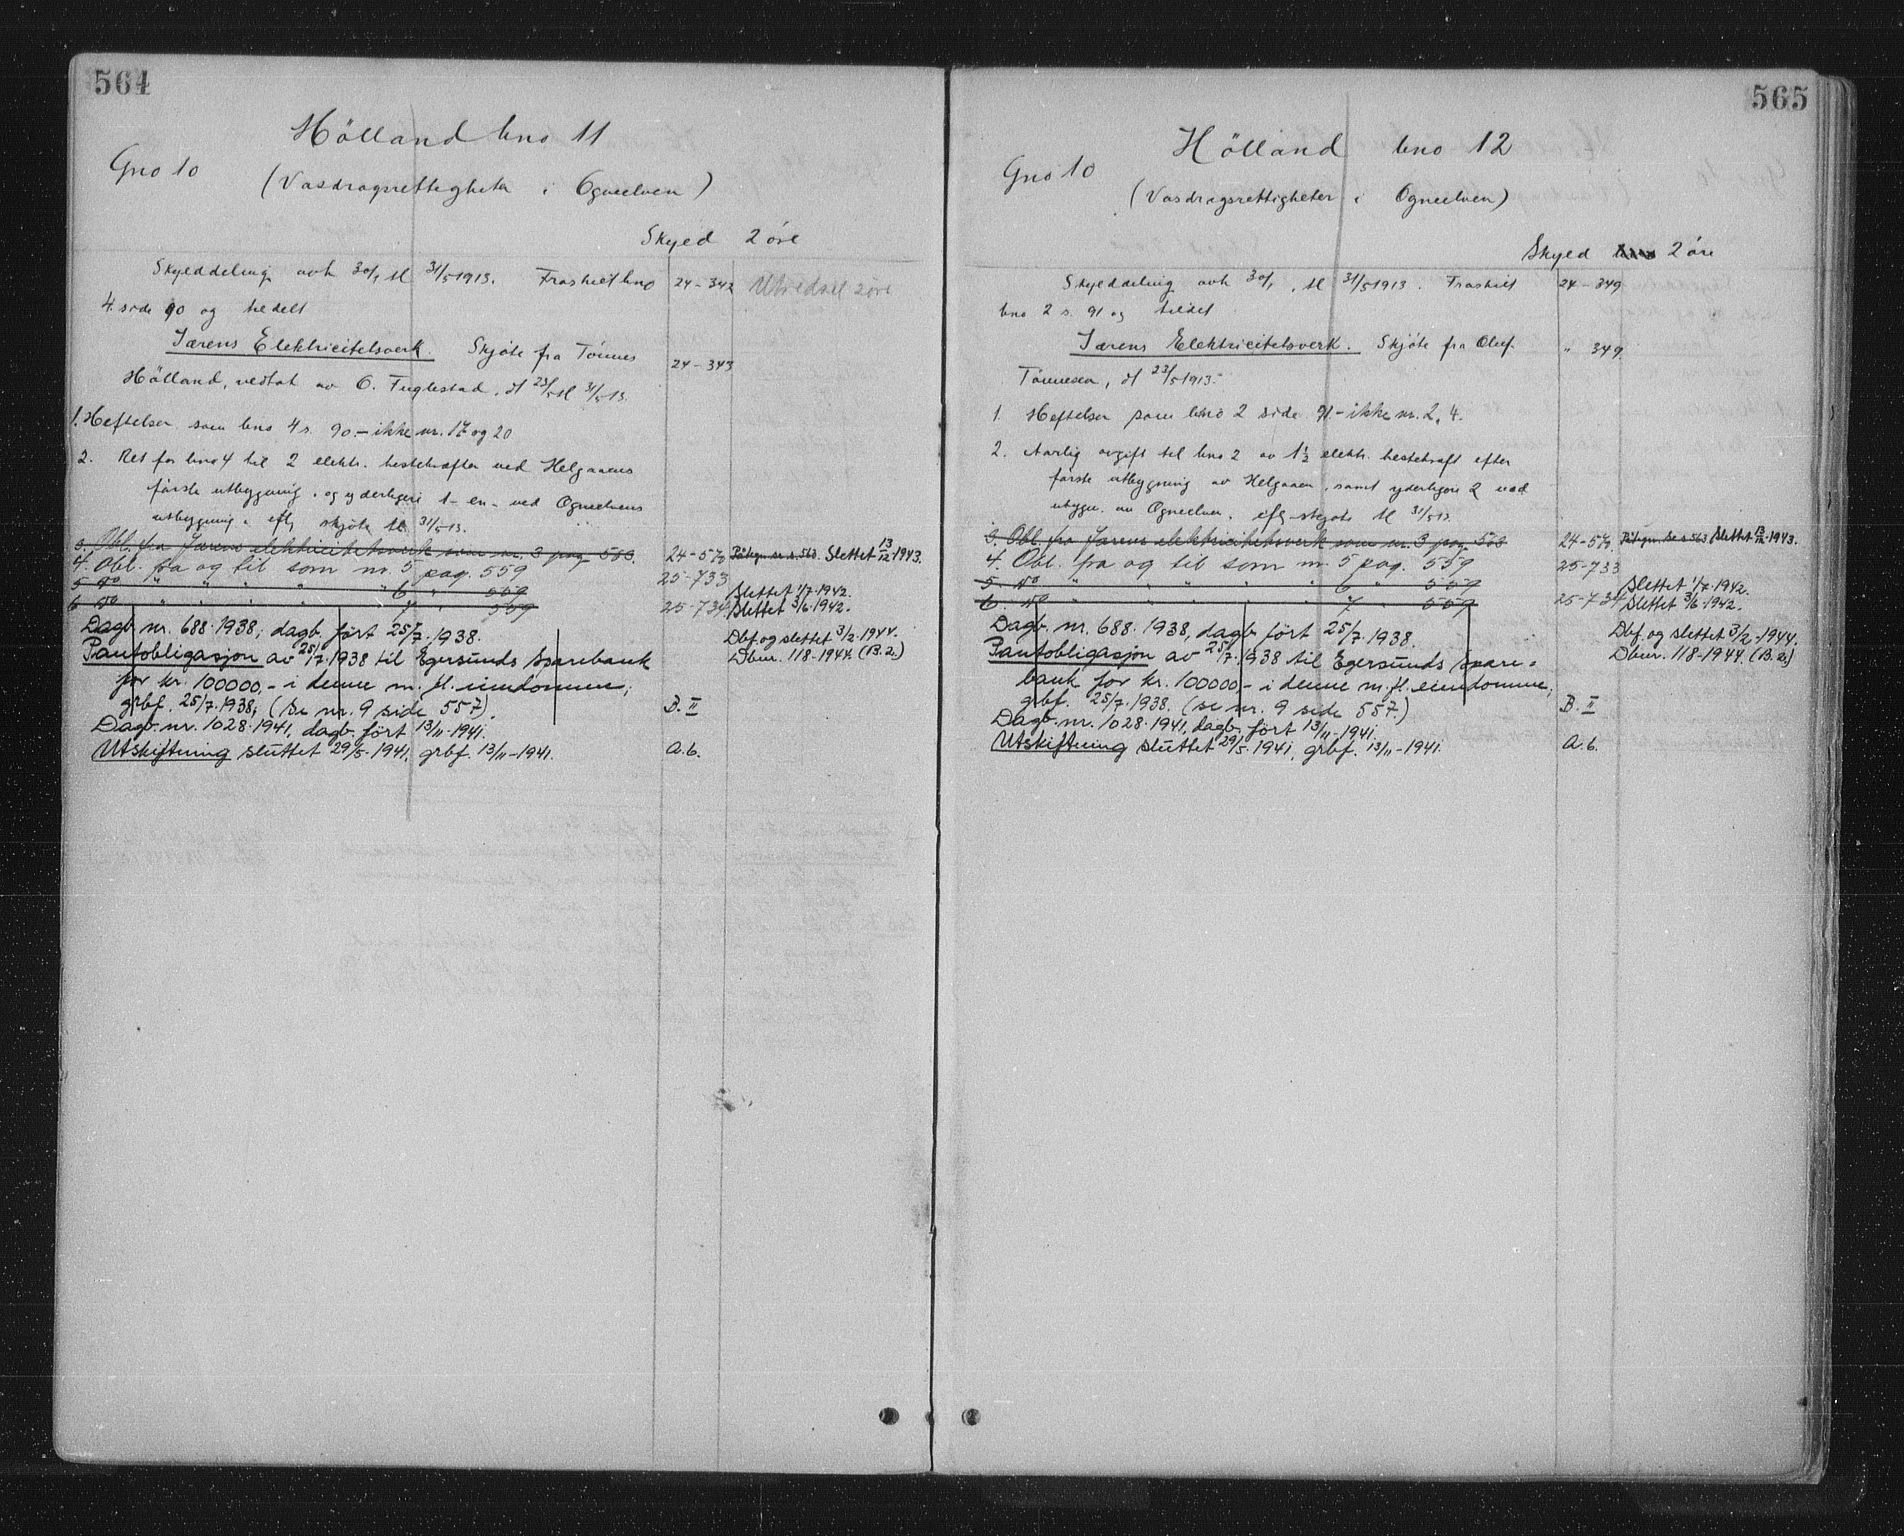 564
Hölland bno 11
Gno 10
(Vasdragsrettigheter i Ogneelven)
Skyld 2 öre
Skylddeling avh 30/1 tl 31/5 1913. Fraskilt bno 24-342 Utredsel 2 öre
4 side 90 og tildelt
Jærens Elektricitetsverk. Skjöte fra Tönnes 24-343
Hölland, vedtat av O. Fuglestad, d 23/5 tl 31/5 13.
1. Heftelser som bno 4 s. 90 - ikke nr. 17 og 20
2. Ret for bno 4 til 2 elektr. hestekræfter ved Helgaaens
förste utbygning, og yderligere 1 - en - ved Ogneelvens
utbygning, efl. skjöte tl 31/5 13.
3. Obl. fra Jærens elektricitetsverk som nr. 3 pag 563. 24-570 Påtegn. se s. 563. Slettet 13/12 1943.
4. Obl. fra og til som nr. 5 pag. 559 25-733
5 do " " " " " 6 " 559 Slettet 1/7-1942.
6 do " " " " " 7 " 559 25-734 Slettet 3/6-1942.
Dagb. nr. 688-1938; dagb. fört 25/7-1938. Dbf. og slettet 3/2-1944.
Pantobligasjon av 25/7-1938 til Egersunds Sparebank Dbnr. 118-1944. (B.2.)
for kr. 100000,- i denne m. fl. eiendomme;
grbf. 25/7-1938; (se nr. 9 side 557). B. II
Dagb. nr. 1028-1941, dagb. fört 13/11-1941.
Utskiftning sluttet 29/5-1941, grbf. 13/11-1941. A. 6.
565
Hölland bno 12
Gno 10
(Vasdragsrettigheter i Ogneelven)
Skyld 2 öre
Skylddeling avh 30/1, tl 31/5 1913. Fraskilt 24-349
bno 2 s. 91 og tildelt
Jærens Elektricitetsverk. Skjöte fra Oluf " 349
Tönnesen, d 23/5 1913.
1. Heftelser som bno 2 side 91 - ikke nr. 2, 4.
2. Aarlig avgift til bno 2 av 1½ elektr. hestekraft efter
förste utbygning av Helgaaen, samt yderligere 2 ved
utbygn. av Ogneelven, efl. skjöte tl 31/5 13
3. Obl. fra Jærens elektricitetsverk som nr. 3 pag. 563 24-570. Påtegn. se s 563 Slettet 13/12-1943.
4. Obl. fra og til som nr. 5 pag. 559 25-733
5. do " " " " " 6 " 559 Slettet 1/7-1942.
6. do " " " " " 7 " 559 25-734 Slettet 3/6-1942.
Dagb. nr. 688-1938, dagb. fört 25/7-1938. Dbf. og slettet 3/2-1944.
Pantobligasjon av 25/7-1938 til Egersunds Spare= Dbnr. 118-1944. (B.2.)
bank for kr. 100000,- i denne m. fl. eiendomme;
grbf. 25/7-1938. (se nr. 9 side 557.) B. II
Dagb. nr. 1028-1941, dagb. fört 13/11-1941.
Utskiftning sluttet 29/5-1941, grbf. 13/11-1941. A. 6.